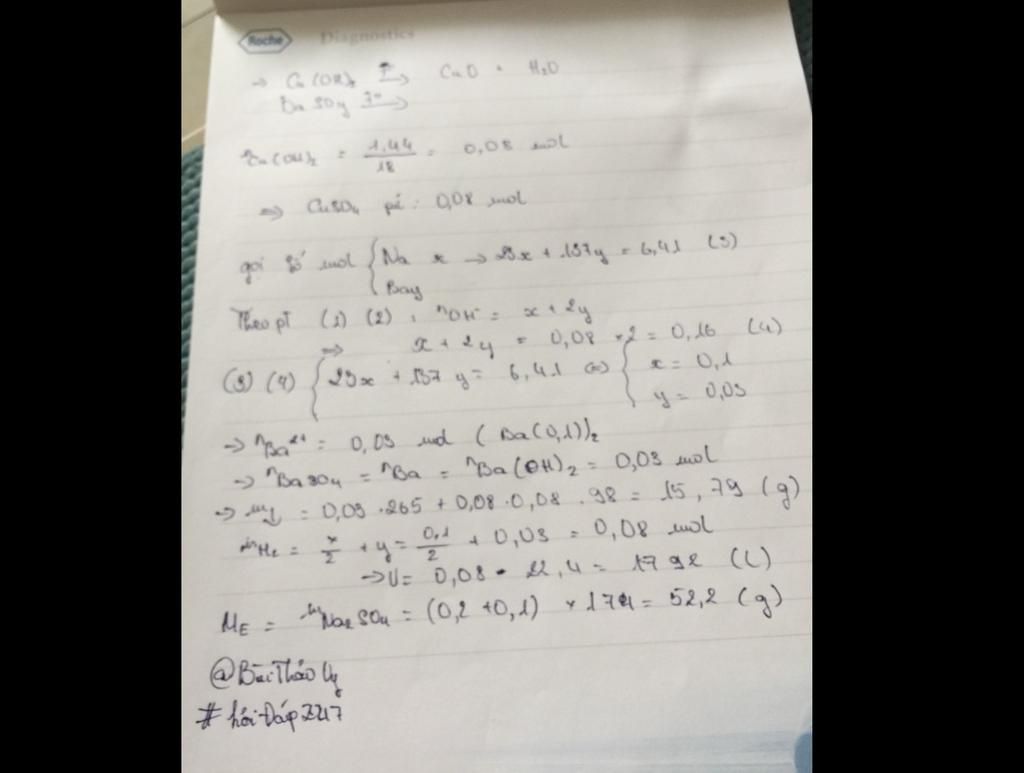 Roche Diagnostics
→ Cu(OH)₂ T°→ CuO + H₂O
BaSO₄ T°→
nCu(OH)₂ = 1,44/18 = 0,08 mol
⇒ CuSO₄ pư : 0,08 mol
gọi số mol { Na x → 23x + 137y = 6,41 (3)
Ba y
Theo pt (1) (2) : nOH⁻ = x + 2y
⇒ x + 2y = 0,08 × 2 = 0,16 (4)
(3) (4) { 23x + 137y = 6,41 ⇔ { x = 0,1
y = 0,03
→ nBa²⁺ = 0,03 mol (Ba(0,1))₂
→ nBaSO₄ = nBa = nBa(OH)₂ = 0,03 mol
→ m↓ = 0,03 . 265 + 0,08 . 0,08 . 98 = 15,79 (g)
nH₂ = x/2 + y = 0,1/2 + 0,03 = 0,08 mol
→ V = 0,08 . 22,4 = 1792 (L)
ME = mNa₂SO₄ = (0,2 + 0,1) × 174 = 52,2 (g)
@BùiThảoVy
#hỏiĐáp247